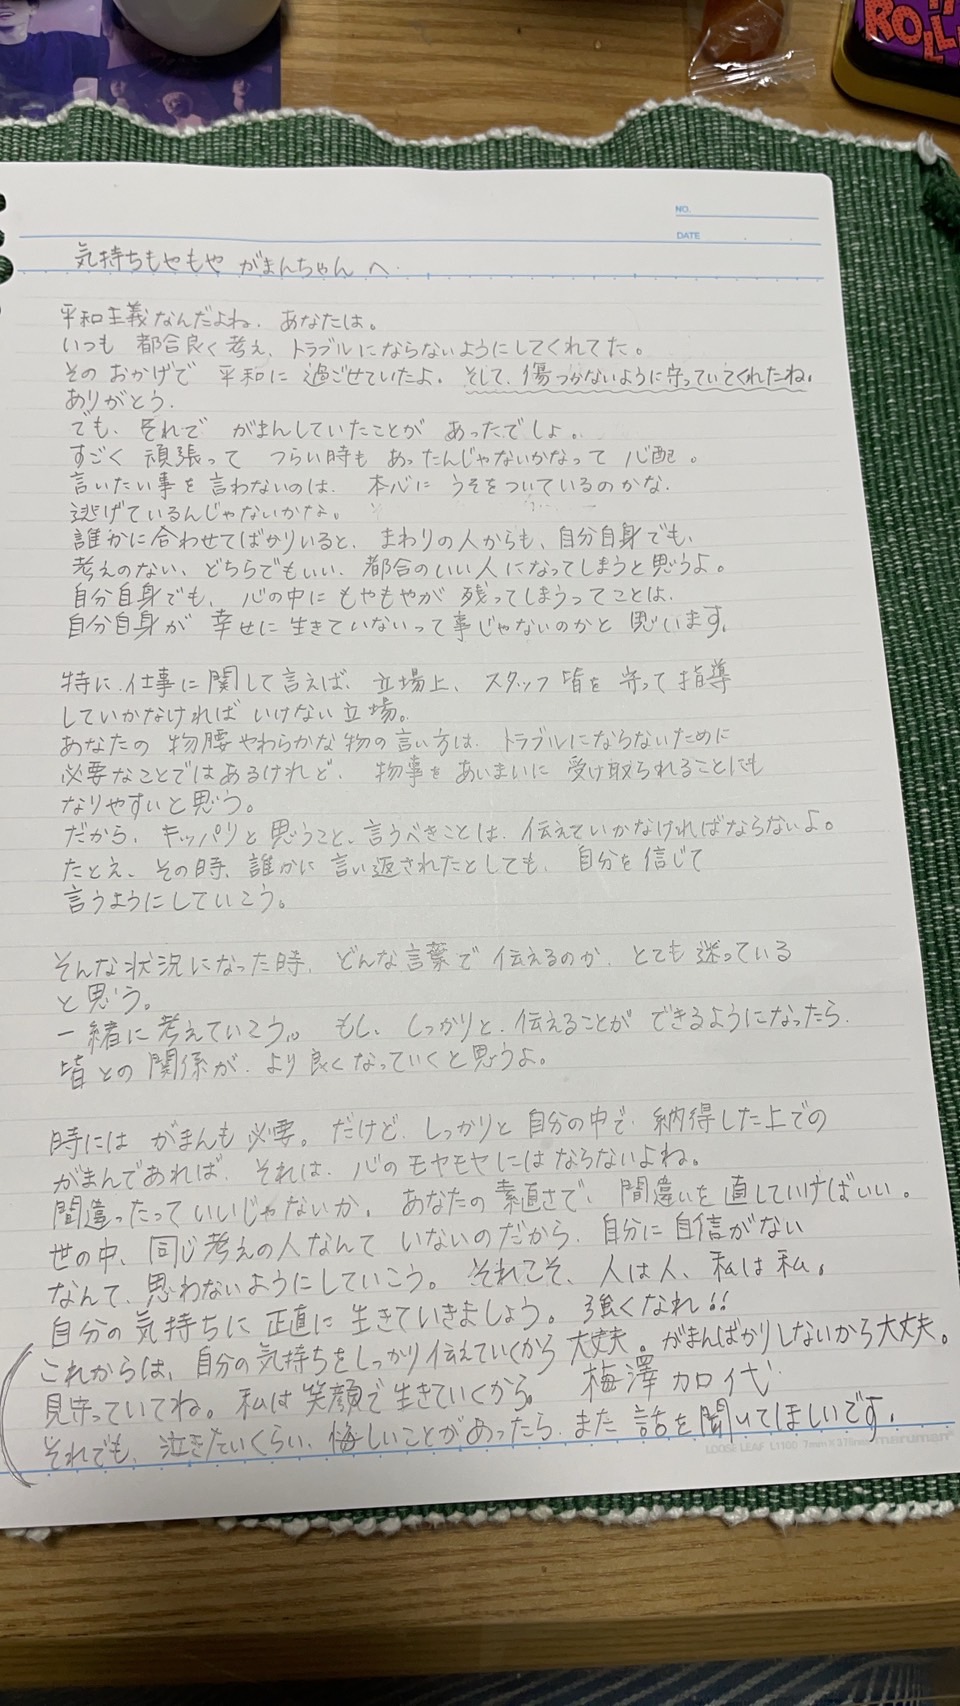 ROLL
NO.
DATE
気持ちもやもや がまんちゃん へ
平和主義なんだよね. あなたは。
いつも 都合良く考え、トラブルにならないようにしてくれてた。
そのおかげで 平和に過ごせていたよ. そして、傷つかないように守っていてくれたね.
ありがとう.
でも、それで がまんしていたことが あったでしょ。
すごく 頑張って つらい時も あったんじゃないかなって 心配。
言いたい事を言わないのは、本心に うそをついているのかな.
逃げているんじゃないかな。
誰かに合わせてばかりいると、まわりの人からも、自分自身でも、
考えのない、どちらでもいい、都合のいい人になってしまうと思うよ。
自分自身でも、心の中に もやもやが 残ってしまうってことは、
自分自身が 幸せに生きていないって事じゃないのかと 思います.
特に、仕事に関して言えば、立場上、スタッフ皆を 守って指導
していかなければ いけない立場。
あなたの 物腰やわらかな物の言い方は、トラブルにならないために
必要なことではあるけれど、物事をあいまいに 受け取られることにも
なりやすいと思う。
だから、キッパリと思うこと、言うべきことは、伝えていかなければならないよ。
たとえ、その時、誰かに言い返されたとしても、自分を信じて
言うようにしていこう。
そんな状況になった時、どんな言葉で伝えるのか、とても迷っている
と思う。
一緒に考えていこう。 もし、しっかりと、伝えることが できるようになったら、
皆との関係が、より良くなっていくと思うよ。
時には がまんも必要。だけど、しっかりと 自分の中で 納得した上での
がまんであれば、それは、心のモヤモヤにはならないよね。
間違ったっていいじゃないか。あなたの素直さで、間違いを直していけばいい。
世の中、同じ考えの人なんて いないのだから、自分に自信がない
なんて、思わないようにしていこう。それこそ、人は人、私は私。
自分の気持ちに正直に生きていきましょう。強くなれ!!
これからは、自分の気持ちをしっかり伝えていくから 大丈夫。がまんばかりしないから大丈夫。
見守っていてね。私は笑顔で生きていくから。 梅澤加代
それでも、泣きたいくらい、悔しいことがあったら、また 話を聞いてほしいです.
LOOSE LEAF L1100 7mm×37lines maruman